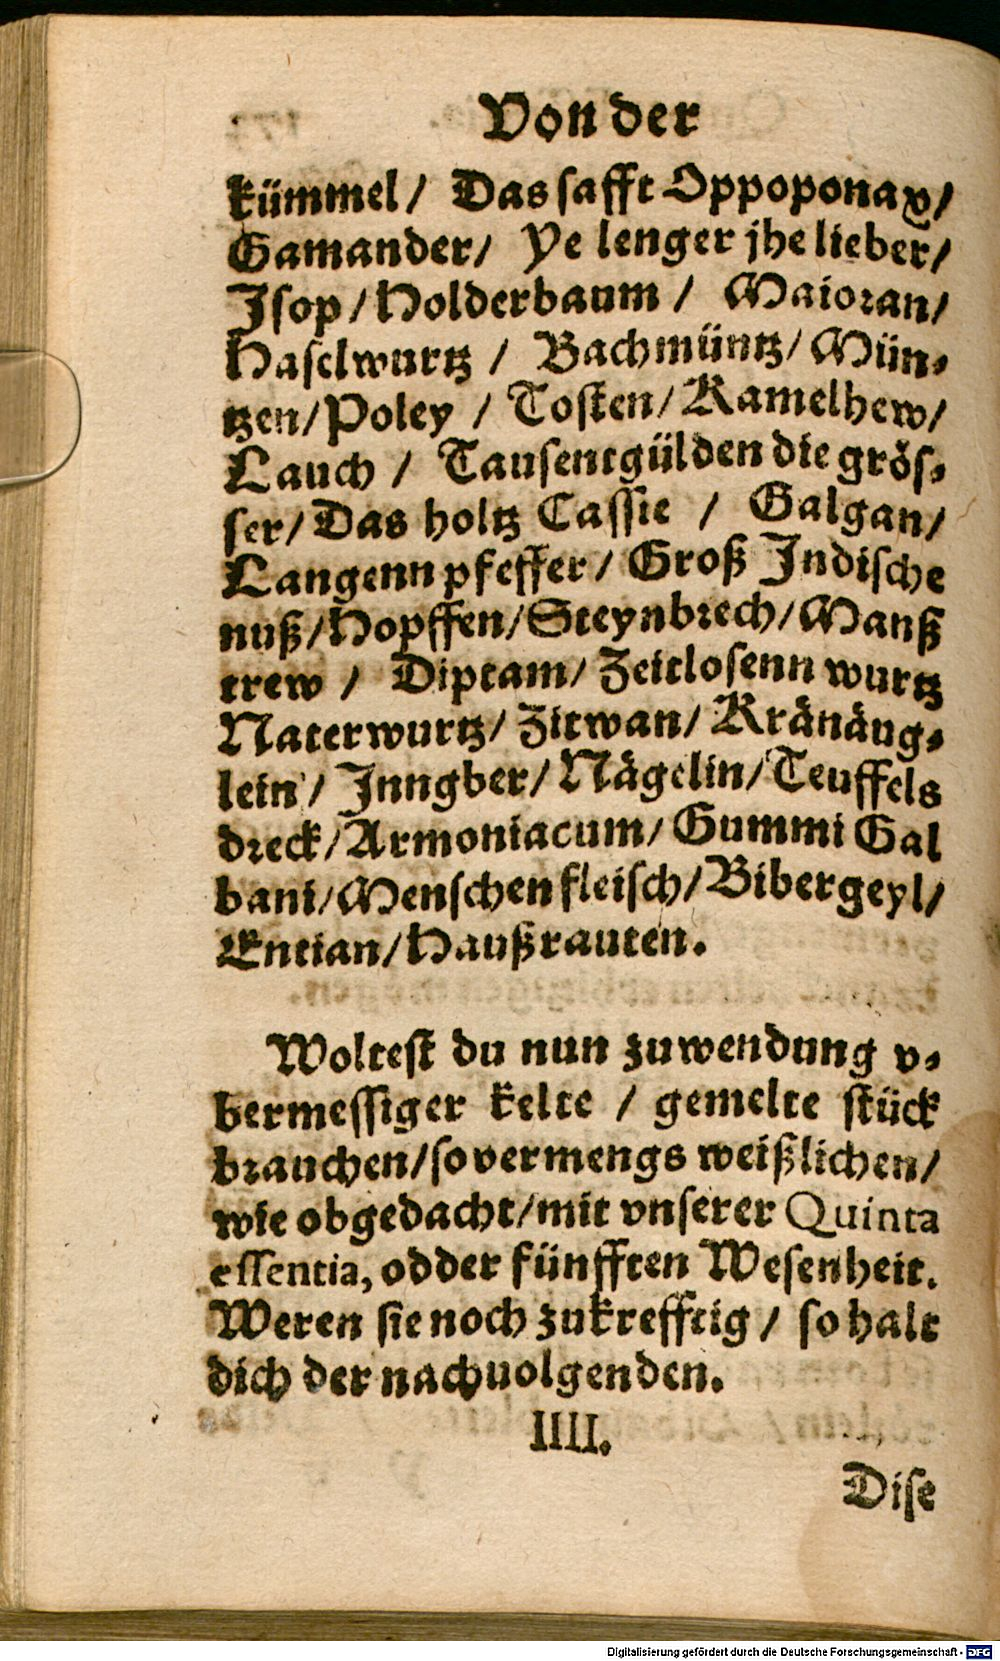 Von der
kümmel/ Das safft Oppoponax/
Gamander/ Ye lenger jhe lieber/
Jsop/Holderbaum / Maioran/
Haselwurtz / Bachmüntz/Mün-
tzen/Poley / Tosten/Kamelhew/
Lauch / Tausentgülden die grös-
ser/Das holtz Cassie / Galgan/
Langenn pfeffer/Groß Jndische
nuß/Hopffen/Steynbrech/Manß
trew / Diptam/Zeitlosenn wurtz
Naterwurtz/Zitwan/Kränäug-
lein/Jnngber/Nägelin/Teuffels
dreck/Armoniacum/Gummi Gal
bani/Menschen fleisch/Bibergeyl/
Entian/Haußrauten.
Woltest du nun zuwendung v-
bermessiger kelte / gemelte stück
brauchen/so vermengs weißlichen/
wie obgedacht/mit vnserer Quinta
essentia, odder fünfften Wesenheit.
Weren sie noch zukrefftig / so halt
dich der nachuolgenden.
IIII.
Dise
Digitalisierung gefördert durch die Deutsche Forschungsgemeinschaft - DFG